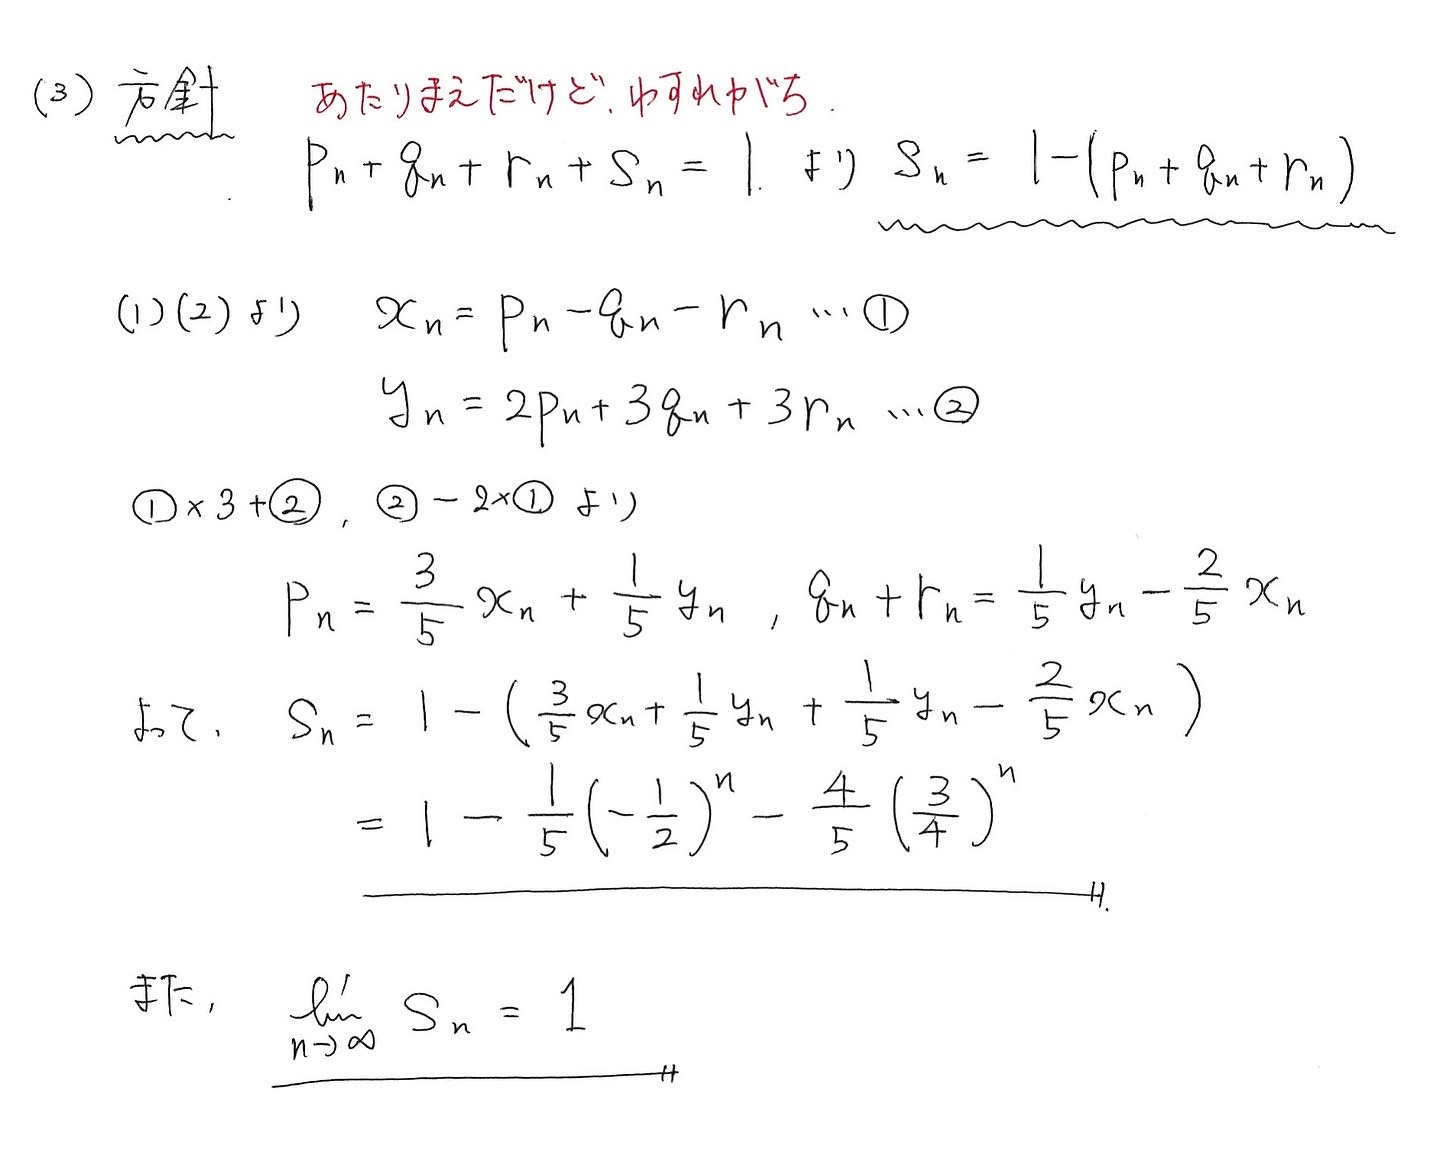 (3) 方針 あたりまえだけど、わすれがち.
pₙ + qₙ + rₙ + sₙ = 1. より sₙ = 1 − (pₙ + qₙ + rₙ)
(1)(2)より xₙ = pₙ − qₙ − rₙ … ①
yₙ = 2pₙ + 3qₙ + 3rₙ … ②
①×3+②, ②−2×① より
pₙ = 3/5 xₙ + 1/5 yₙ , qₙ + rₙ = 1/5 yₙ − 2/5 xₙ
よって, sₙ = 1 − (3/5 xₙ + 1/5 yₙ + 1/5 yₙ − 2/5 xₙ)
= 1 − 1/5 (−1/2)ⁿ − 4/5 (3/4)ⁿ
また, lim n→∞ sₙ = 1